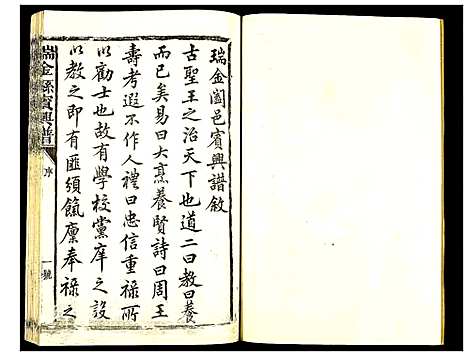 瑞金闔邑賓興譜敘
古聖王之治天下也道二曰教曰養
而已矣易曰大烹養賢詩曰周王
壽考遐不作人禮曰忠信重祿所
以勸士也故有學校黨庠之設
以教之即有匪頒餼廩奉祿之
瑞金縣賓興譜
序
一號